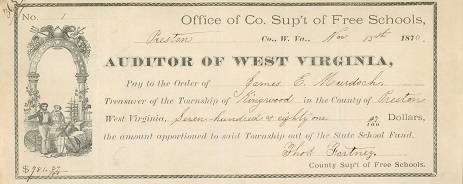 No. 1
Office of Co. Sup't of Free Schools,
Preston Co., W. Va., Nov 15th 1870.
AUDITOR OF WEST VIRGINIA,
Pay to the Order of James E. Murdock
Treasurer of the Township of Kingwood in the County of Preston
West Virginia, Seven hundred & eighty one /100 Dollars,
the amount apportioned to said Township out of the State School Fund.
Thos. Fortney
$781. County Sup't of Free Schools.